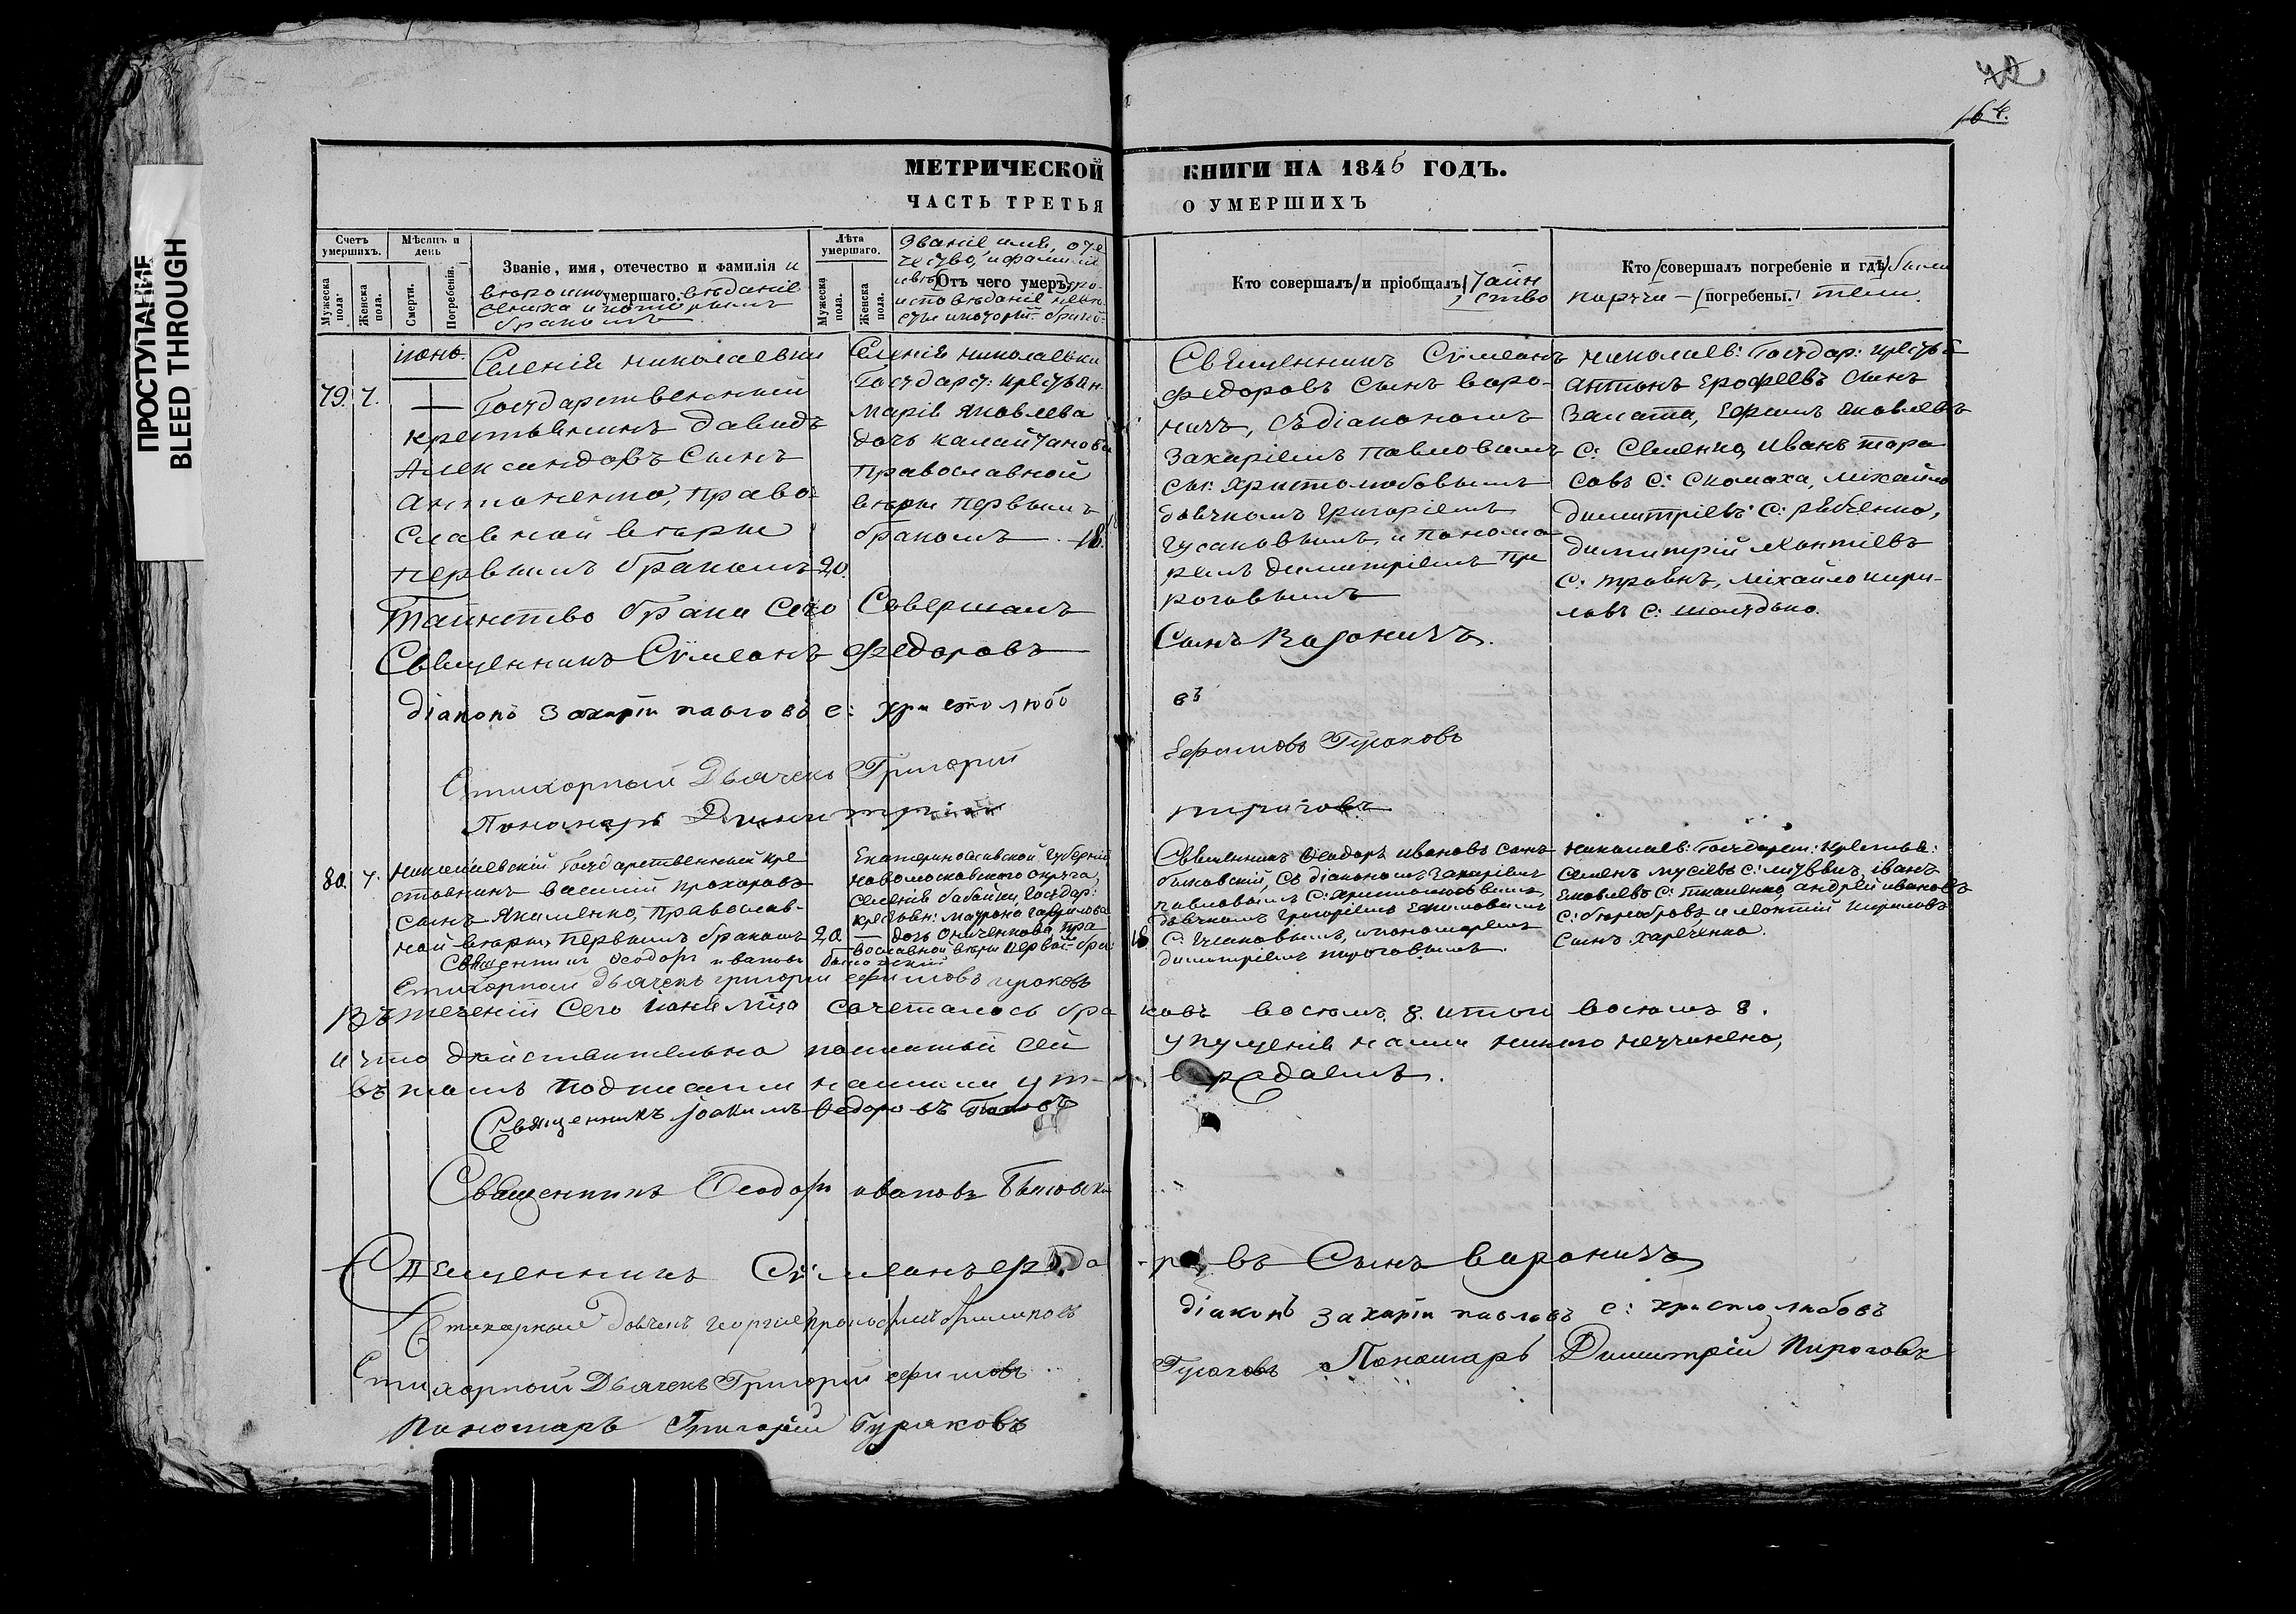 42
164.
ПРОСТУПАНИЕ
BLEED THROUGH
МЕТРИЧЕСКОЙ КНИГИ НА 1845 ГОДЪ.
ЧАСТЬ ТРЕТЬЯ О УМЕРШИХЪ
Счетъ умершихъ.
Мужеска пола.
Женска пола.
Мѣсяцъ и день
Смерти.
Погребенія.
Званіе, имя, отечество и фамилія и
умершаго.
жениха и которымъ
бракомъ
Лѣта умершаго.
Мужеска пола.
Женска пола.
Званіе имя, оте
чество, и фамилія
Отъ чего умеръ
Кто совершалъ и пріобщалъ Таин
ство
Кто совершалъ погребеніе и гдѣ были
поручи - погребены. тели.
іюнь.
79. 7.
Селенія николаевки
Государственный
крестьянинъ давидъ
Александровъ Сынъ
антоненко, право
славной вѣры
первымъ бракомъ 20.
Селенія николаевки
Государст: крестьян:
Марія Яковлева
дочь калайтанова
православной
вѣры первымъ
бракомъ 18.
Священникъ Сѵмеонъ
федоровъ Сынъ варо-
ничъ, съ діакономъ
Захаріемъ павловымъ
сы: христолюбовымъ
дьячкомъ григоріемъ
гусаковымъ и понома
ремъ димитріемъ пи
роговымъ
николаев: Государ: кресть
антонъ ерофеевъ сынъ
Заната, ефимъ яковлевъ
с: Семенко, иванъ тара
совъ с: Скомаха, михайло
димитріевъ с: рябченко,
димитрій леонтіевъ
с: правикъ, михайло кири-
ловъ с: шолудько.
Таинство брака сего Совершалъ
Священникъ Сѵмеонъ федоровъ Сынъ Вароничъ.
діаконъ Захарій павловъ с: христолюбо въ
Стихарный Дьячекъ Григорій Ефимовъ Гусаковъ
Пономарь Димитрій пироговъ
80. 7.
николаевскій Государственный кре
стьянинъ василій прохоровъ
сынъ якименко, православ-
ной вѣры первымъ бракомъ 20.
Екатеринославской губерніи
новомосковскаго округа,
селенія бабайки, государ:
крестьян: матрона гаврилова
дочь Ониченкова, пра
вославной вѣры первым: бра: 18
Священникъ Ѳеодоръ ивановъ сынъ
быковскій, съ діакономъ захаріемъ
павловымъ с: христолюбовымъ
дьячкомъ григоріемъ ефимовымъ
с: гусаковымъ, и пономаремъ
димитріемъ пироговымъ.
николаев: Государст: крестья:
семенъ мусіевъ с: литвинъ, іванъ
яковлевъ с: ткаченко, андрей ивановъ
с: бѣлобровъ, и леонтій кириловъ
сынъ харченко.
Священникъ Ѳеодоръ ивановъ быковскій
Стихарный Дьячекъ григорій ефимовъ гусаковъ
Въ теченіи Сего іюня мца сочеталось бра ковъ восемь 8. итого восемь 8.
и что действительно помянутый сей упущенія нами никого неучинено,
въ томъ подписами нашими ут-верждаемъ.
Священникъ Іоакимъ Ѳедоровъ Поповъ
Священникъ Ѳеодоръ ивановъ Быковскій
Священникъ Сѵмеонъ федоровъ Сынъ вароничъ
діаконъ Захарій павловъ с: христолюбовъ
Стихарный Дьячекъ Григорій ефимовъ Гусаковъ Пономарь Димитрій Пироговъ
Пономарь Григорій Буряковъ